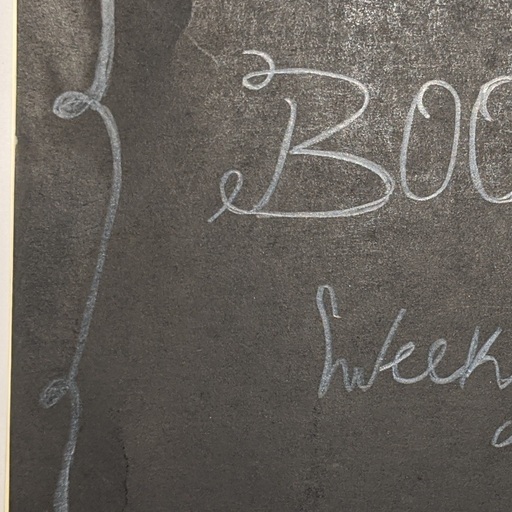 BOO
Week